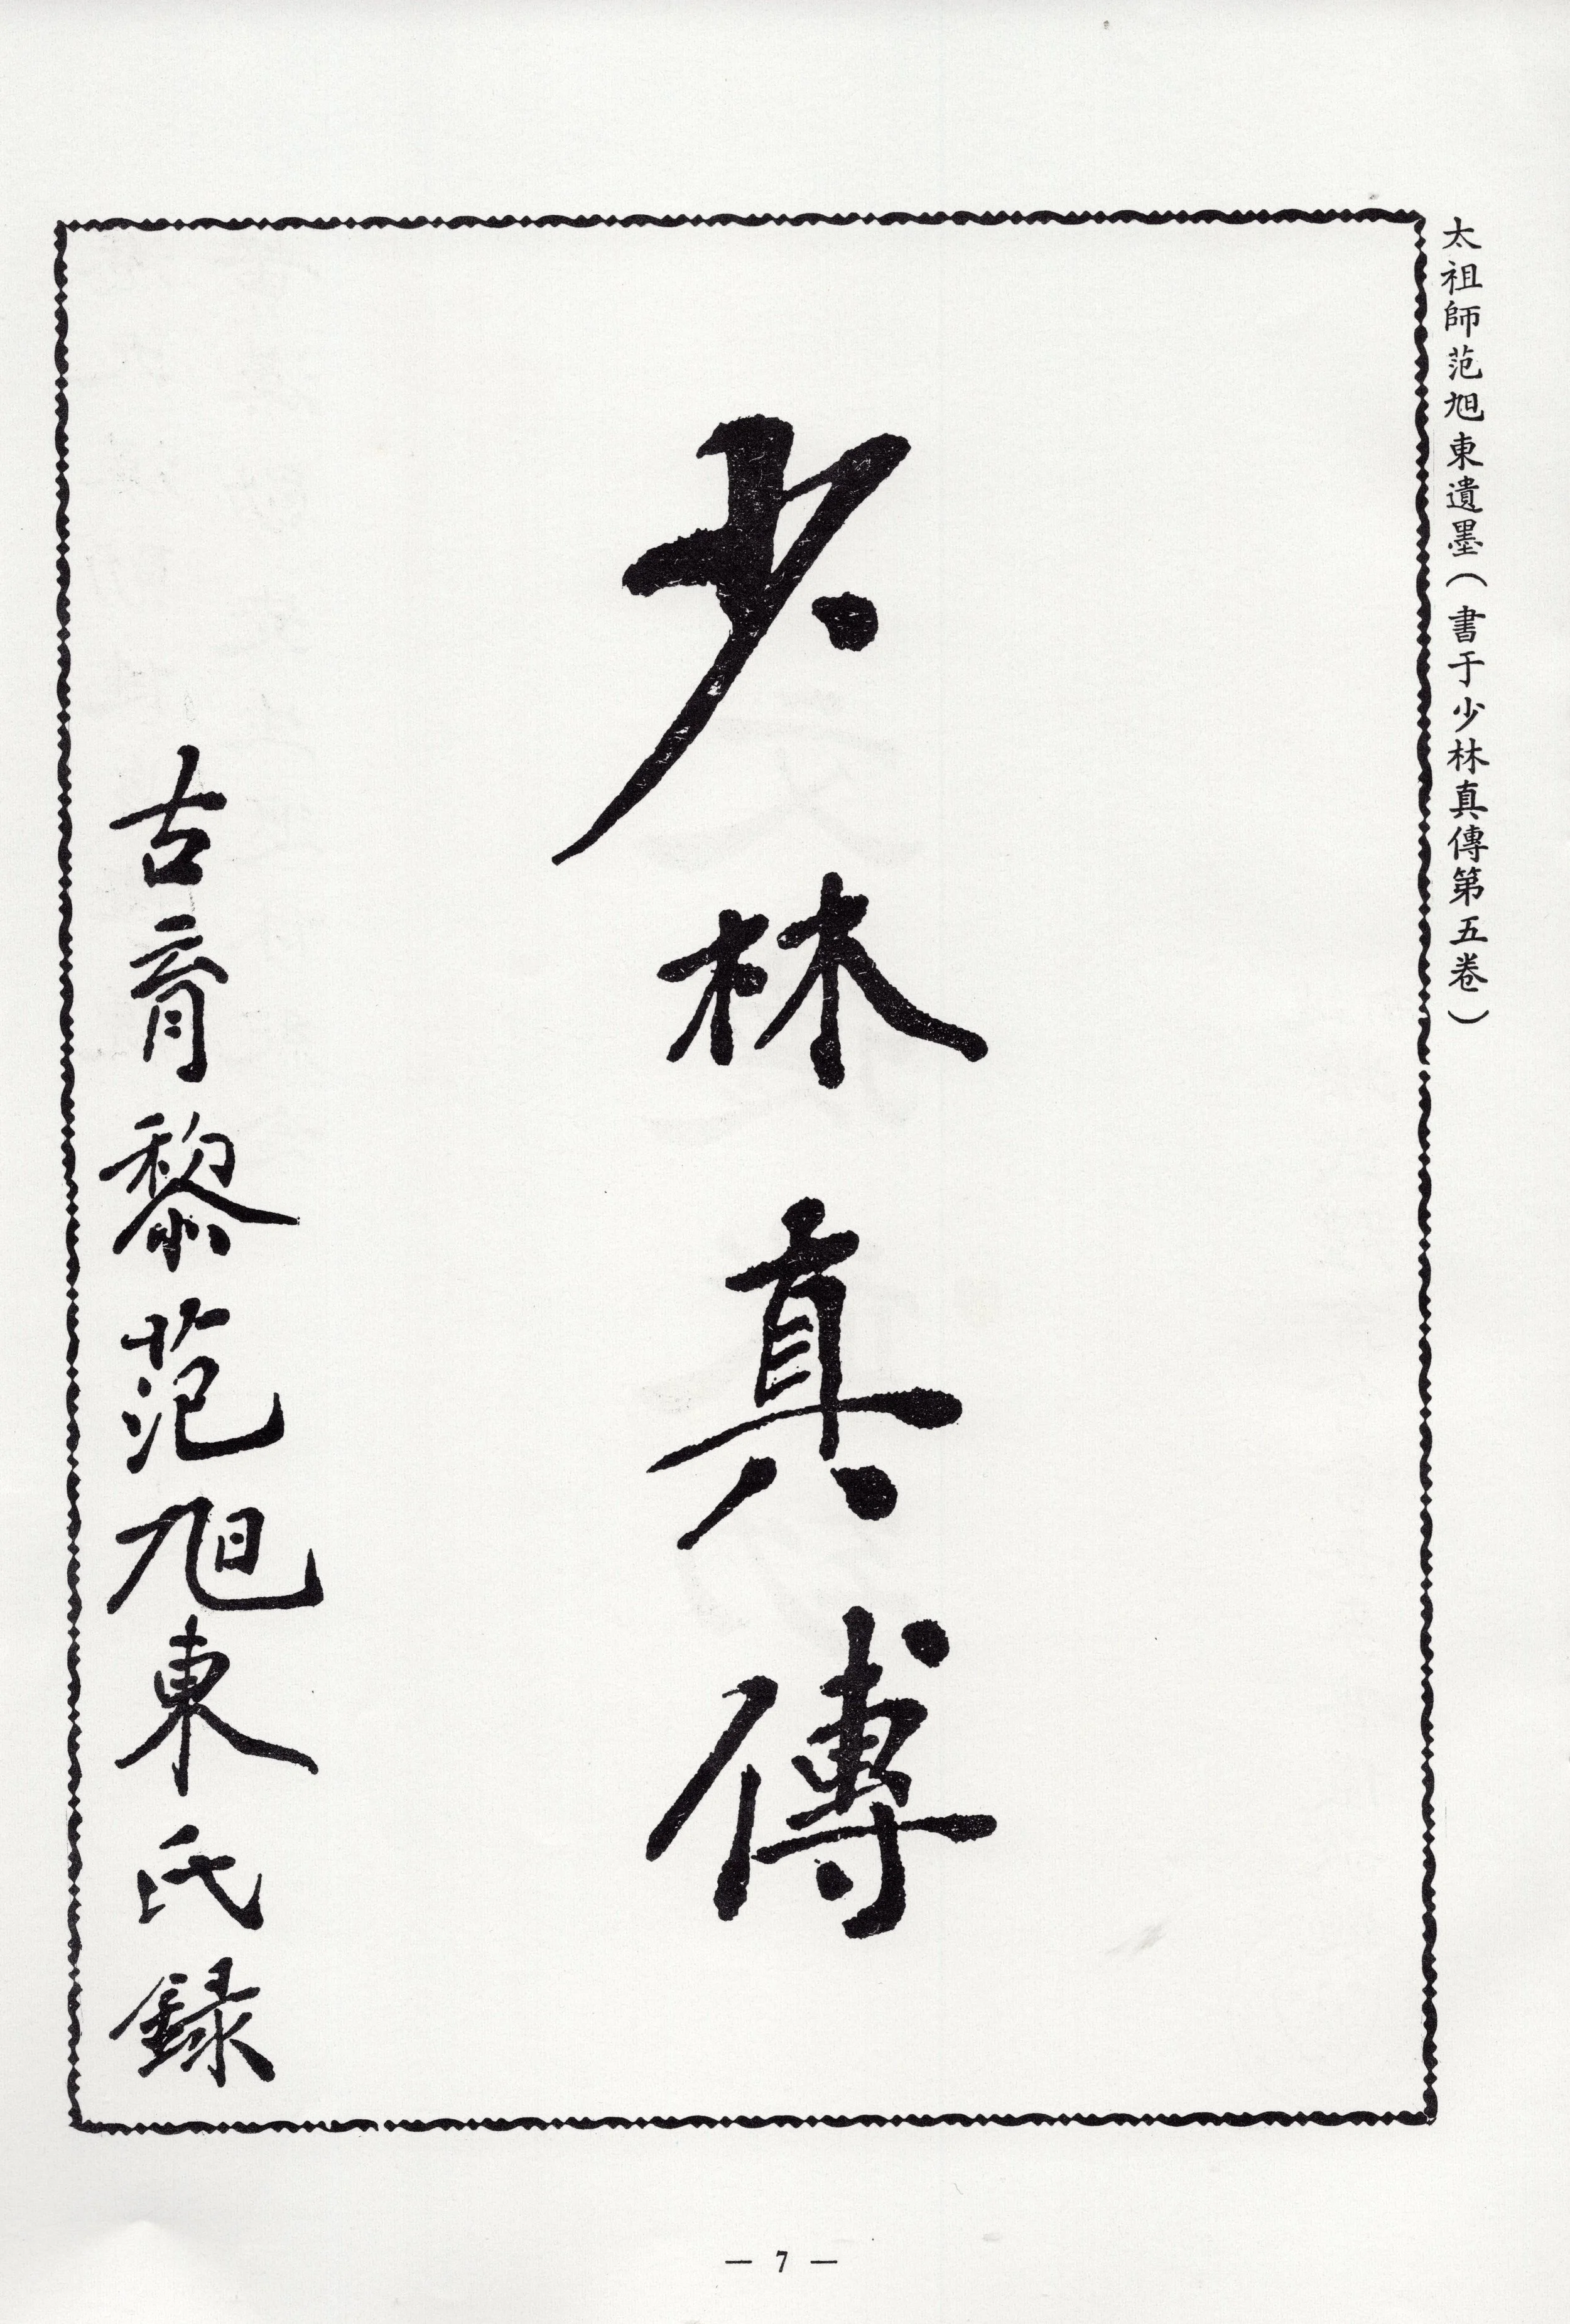 太祖師范旭東遺墨（書于少林真傳第五卷）
少林真傳
古育黎范旭東氏録
— 7 —